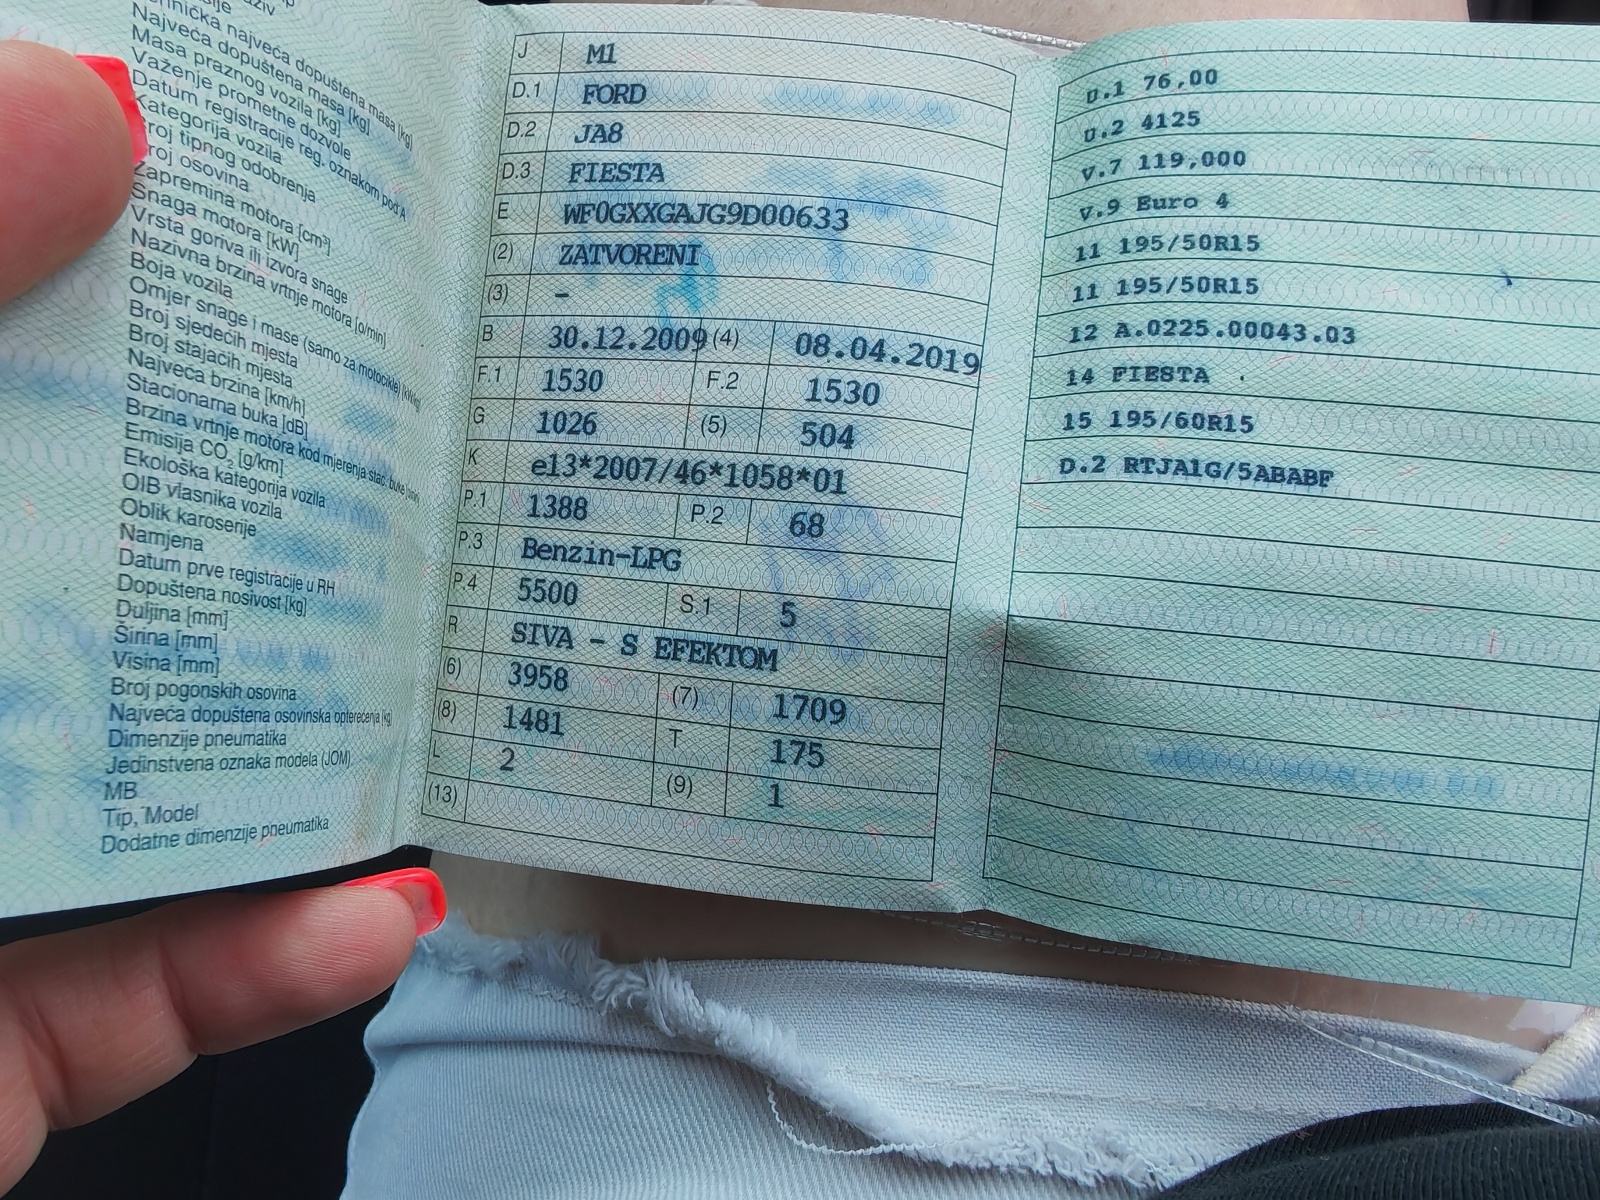 Najveća dopuštena masa [kg]
Masa praznog vozila [kg]
Važenje prometne dozvole
Datum registracije reg. oznakom pod A
Kategorija vozila
Broj tipnog odobrenja
Broj osovina
Zapremina motora [cm³]
Snaga motora [kW]
Vrsta goriva ili izvora snage
Nazivna brzina vrtnje motora [o/min]
Boja vozila
Omjer snage i mase (samo za motocikle) [kW/kg]
Broj sjedećih mjesta
Broj stajaćih mjesta
Najveća brzina [km/h]
Stacionarna buka [dB]
Brzina vrtnje motora kod mjerenja stac. buke
Emisija CO₂ [g/km]
Ekološka kategorija vozila
OIB vlasnika vozila
Oblik karoserije
Namjena
Datum prve registracije u RH
Dopuštena nosivost [kg]
Duljina [mm]
Širina [mm]
Visina [mm]
Broj pogonskih osovina
Najveća dopuštena osovinska opterećenja [kg]
Dimenzije pneumatika
Jedinstvena oznaka modela (JOM)
MB
Tip, Model
Dodatne dimenzije pneumatika
J M1
D.1 FORD
D.2 JA8
D.3 FIESTA
E WF0GXXGAJG9D00633
(2) ZATVORENI
(3) –
B 30.12.2009 (4) 08.04.2019
F.1 1530 F.2 1530
G 1026 (5) 504
K e13*2007/46*1058*01
P.1 1388 P.2 68
P.3 Benzin-LPG
P.4 5500 S.1 5
R SIVA - S EFEKTOM
(6) 3958 (7) 1709
(8) 1481 T 175
L 2 (9) 1
(13)
U.1 76,00
U.2 4125
V.7 119,000
V.9 Euro 4
11 195/50R15
11 195/50R15
12 A.0225.00043.03
14 FIESTA
15 195/60R15
D.2 RTJA1G/5ABABF